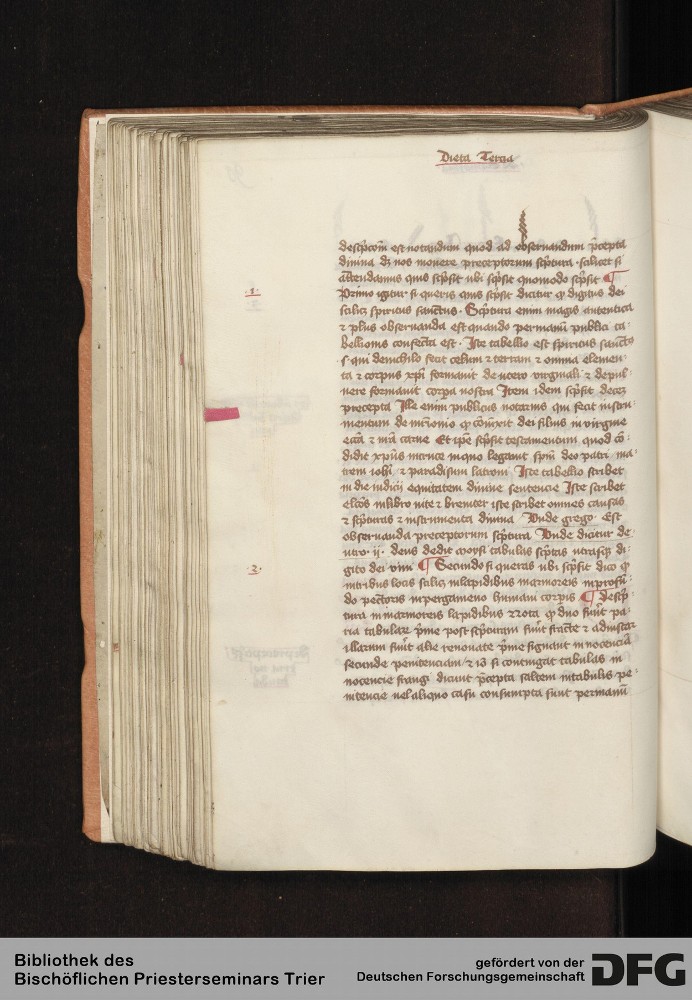 Dieta Tercia
descripcom est notandum quod ad obseruandum pcepta
diuina dz nos mouere preceptorum scptura · salicet si
attendamus quis scpsit ubi scpsit quomodo scpsit ¶
·1·
Primo igitur si queris quis scpsit dicitur ꝙ digitus dei
scilicz spiritus sanctus · Scptura enim magis autentica
⁊ plus obseruanda est quando per manū publici ta-
bellionis confecta est · Iste tabellio est spiritus sanctus
s qui de nichilo fecit celum ⁊ terram ⁊ omnia elemen-
ta ⁊ corpus xpī formauit de utero virginali ⁊ de pul-
uere formauit corpa nostra Item idem scpsit decez
precepta Ille enim publicus notarius qui fecit instru-
mentum de mrīonio ꝙ coniūxit dei filius in virgine
Et ipe scpsit testamentum quod cō-
didit xpūs in cruce in quo legauit spm̄ deo patri ma-
trem iohī ⁊ paradisum latroni Iste tabellio scribet
in die iudicii equitatem diuine sentencie Iste scribet
elcos in libro uite ⁊ breuiter iste scribet omnes causas
⁊ scpturas ⁊ instrumenta diuina Unde grego · Est
obseruanda preceptorum scptura Unde dicitur de
utro · ii · deus dedit moysi tabulas scptas utrasqz di-
gito dei viui ¶ Secundo si queras ubi scpsit dico ꝙ
·2·
in tribus locis scilicz in lapidibus marmoreis in profū-
do pectoris in pergameno humani corpis ¶ Descp-
tura in marmoreis lapidibus nota ꝙ duo fuūt pa-
ria tabularum pme post scpturam fuūt fracte ⁊ ad instar
illarum fuūt alie renouate pme signant innocenciā
secunde penitenciam ⁊ iō si contingat tabulas in-
nocencie frangi dicunt pcepta saltem in tabulis pe-
nitencie uel aliquo casu consumpta sunt per manū
Bibliothek des
Bischöflichen Priesterseminars Trier
gefördert von der
Deutschen Forschungsgemeinschaft
DFG